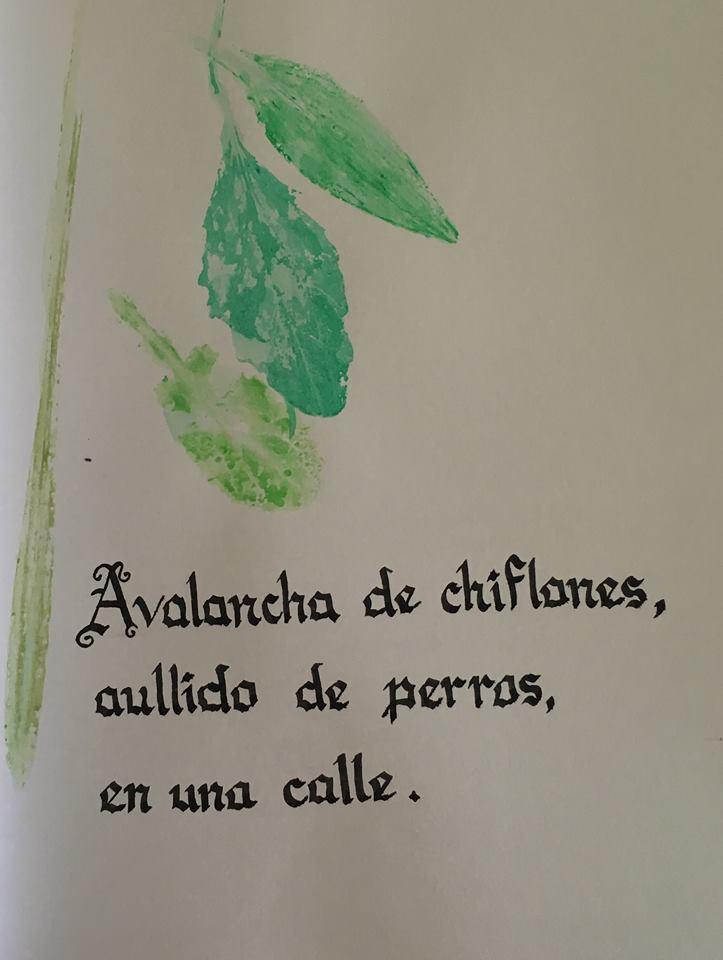 Avalancha de chiflones,
aullido de perros,
en una calle.